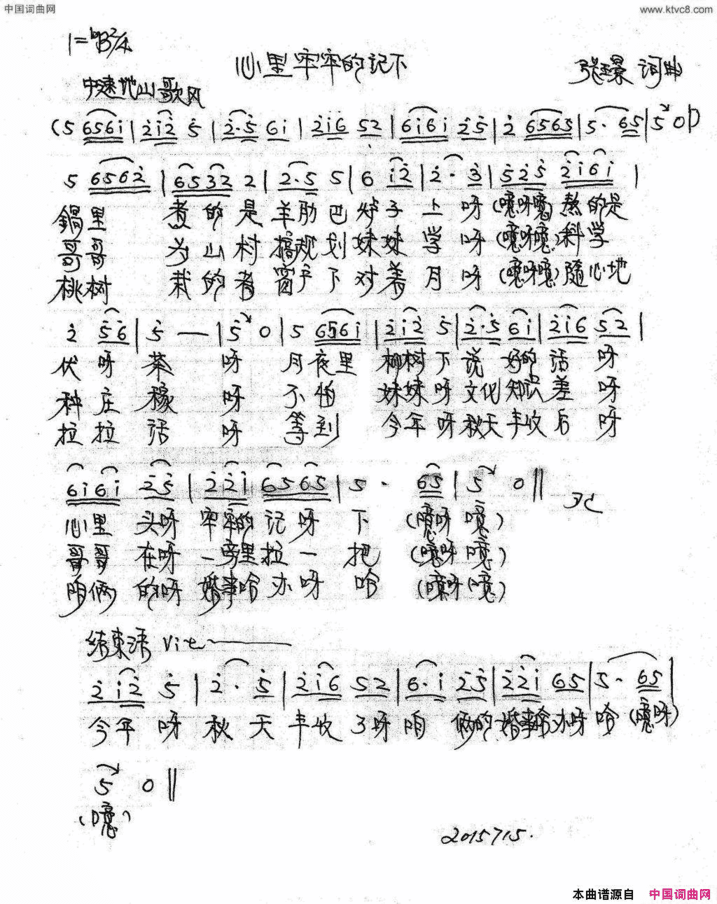 中国词曲网
www.ktvc8.com
1=♭B 2/4
心里牢牢的记下
张玉景 词曲
中速地山歌风
(5 6561|212 5|2·5 61|216 52|6161 25|2 6565|5· 65|5 0|)
5 6562|6532 2|2·5 5|6 12|2· 3|525 2161|
锅里 煮的是羊肋巴 炒子 上 呀(噫呀噫)熬的是
哥哥 为山村搞规划 妹妹 学 呀(噫呀噫)科学
桃树 栽的者窗户下 对着 月 呀(噫呀噫)随心地
2 56|5 —|5 0|5 6561|212 5|2·5 61|216 52|
伏呀 茶 呀 月夜里 柳树下 说 好的 话 呀
种庄 稼 呀 不怕 妹妹呀 文化知识差 呀
拉拉 话 呀 等到 今年呀秋天丰收后 呀
6161 25|221 6565|5· 65|5 0||
心里 头呀 牢牢的 记呀 下 (噫呀 噫)
哥哥 在呀 一旁里拉一 把 (噫呀 噫)
咱俩 的呀 婚事哈办呀 哈 (噫呀 噫)
结束语
212 5|2· 5|216 52|6·1 25|221 65|5· 65|
今年 呀 秋 天 丰收 了呀 咱 俩的 婚事哈办呀 哈(噫呀)
5 0||
(噫)
2015715.
本曲谱源自 中国词曲网